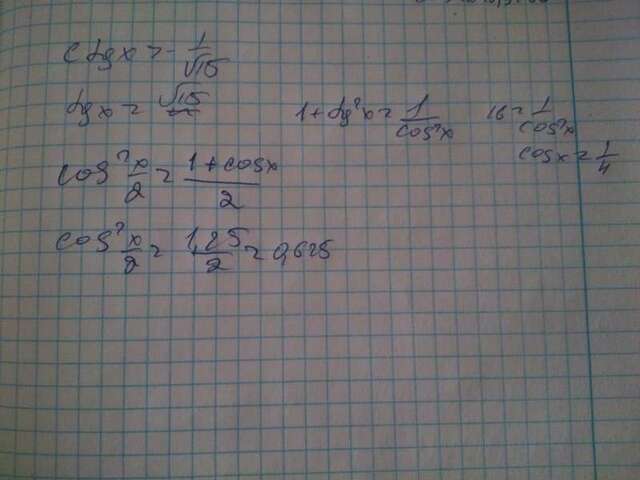 ctgx = 1/√15
tgx = √15
1 + tg²x = 1/cos²x
16 = 1/cos²x
cosx = 1/4
cos² x/2 = (1 + cosx)/2
cos² x/2 = 1,25/2 = 0,625